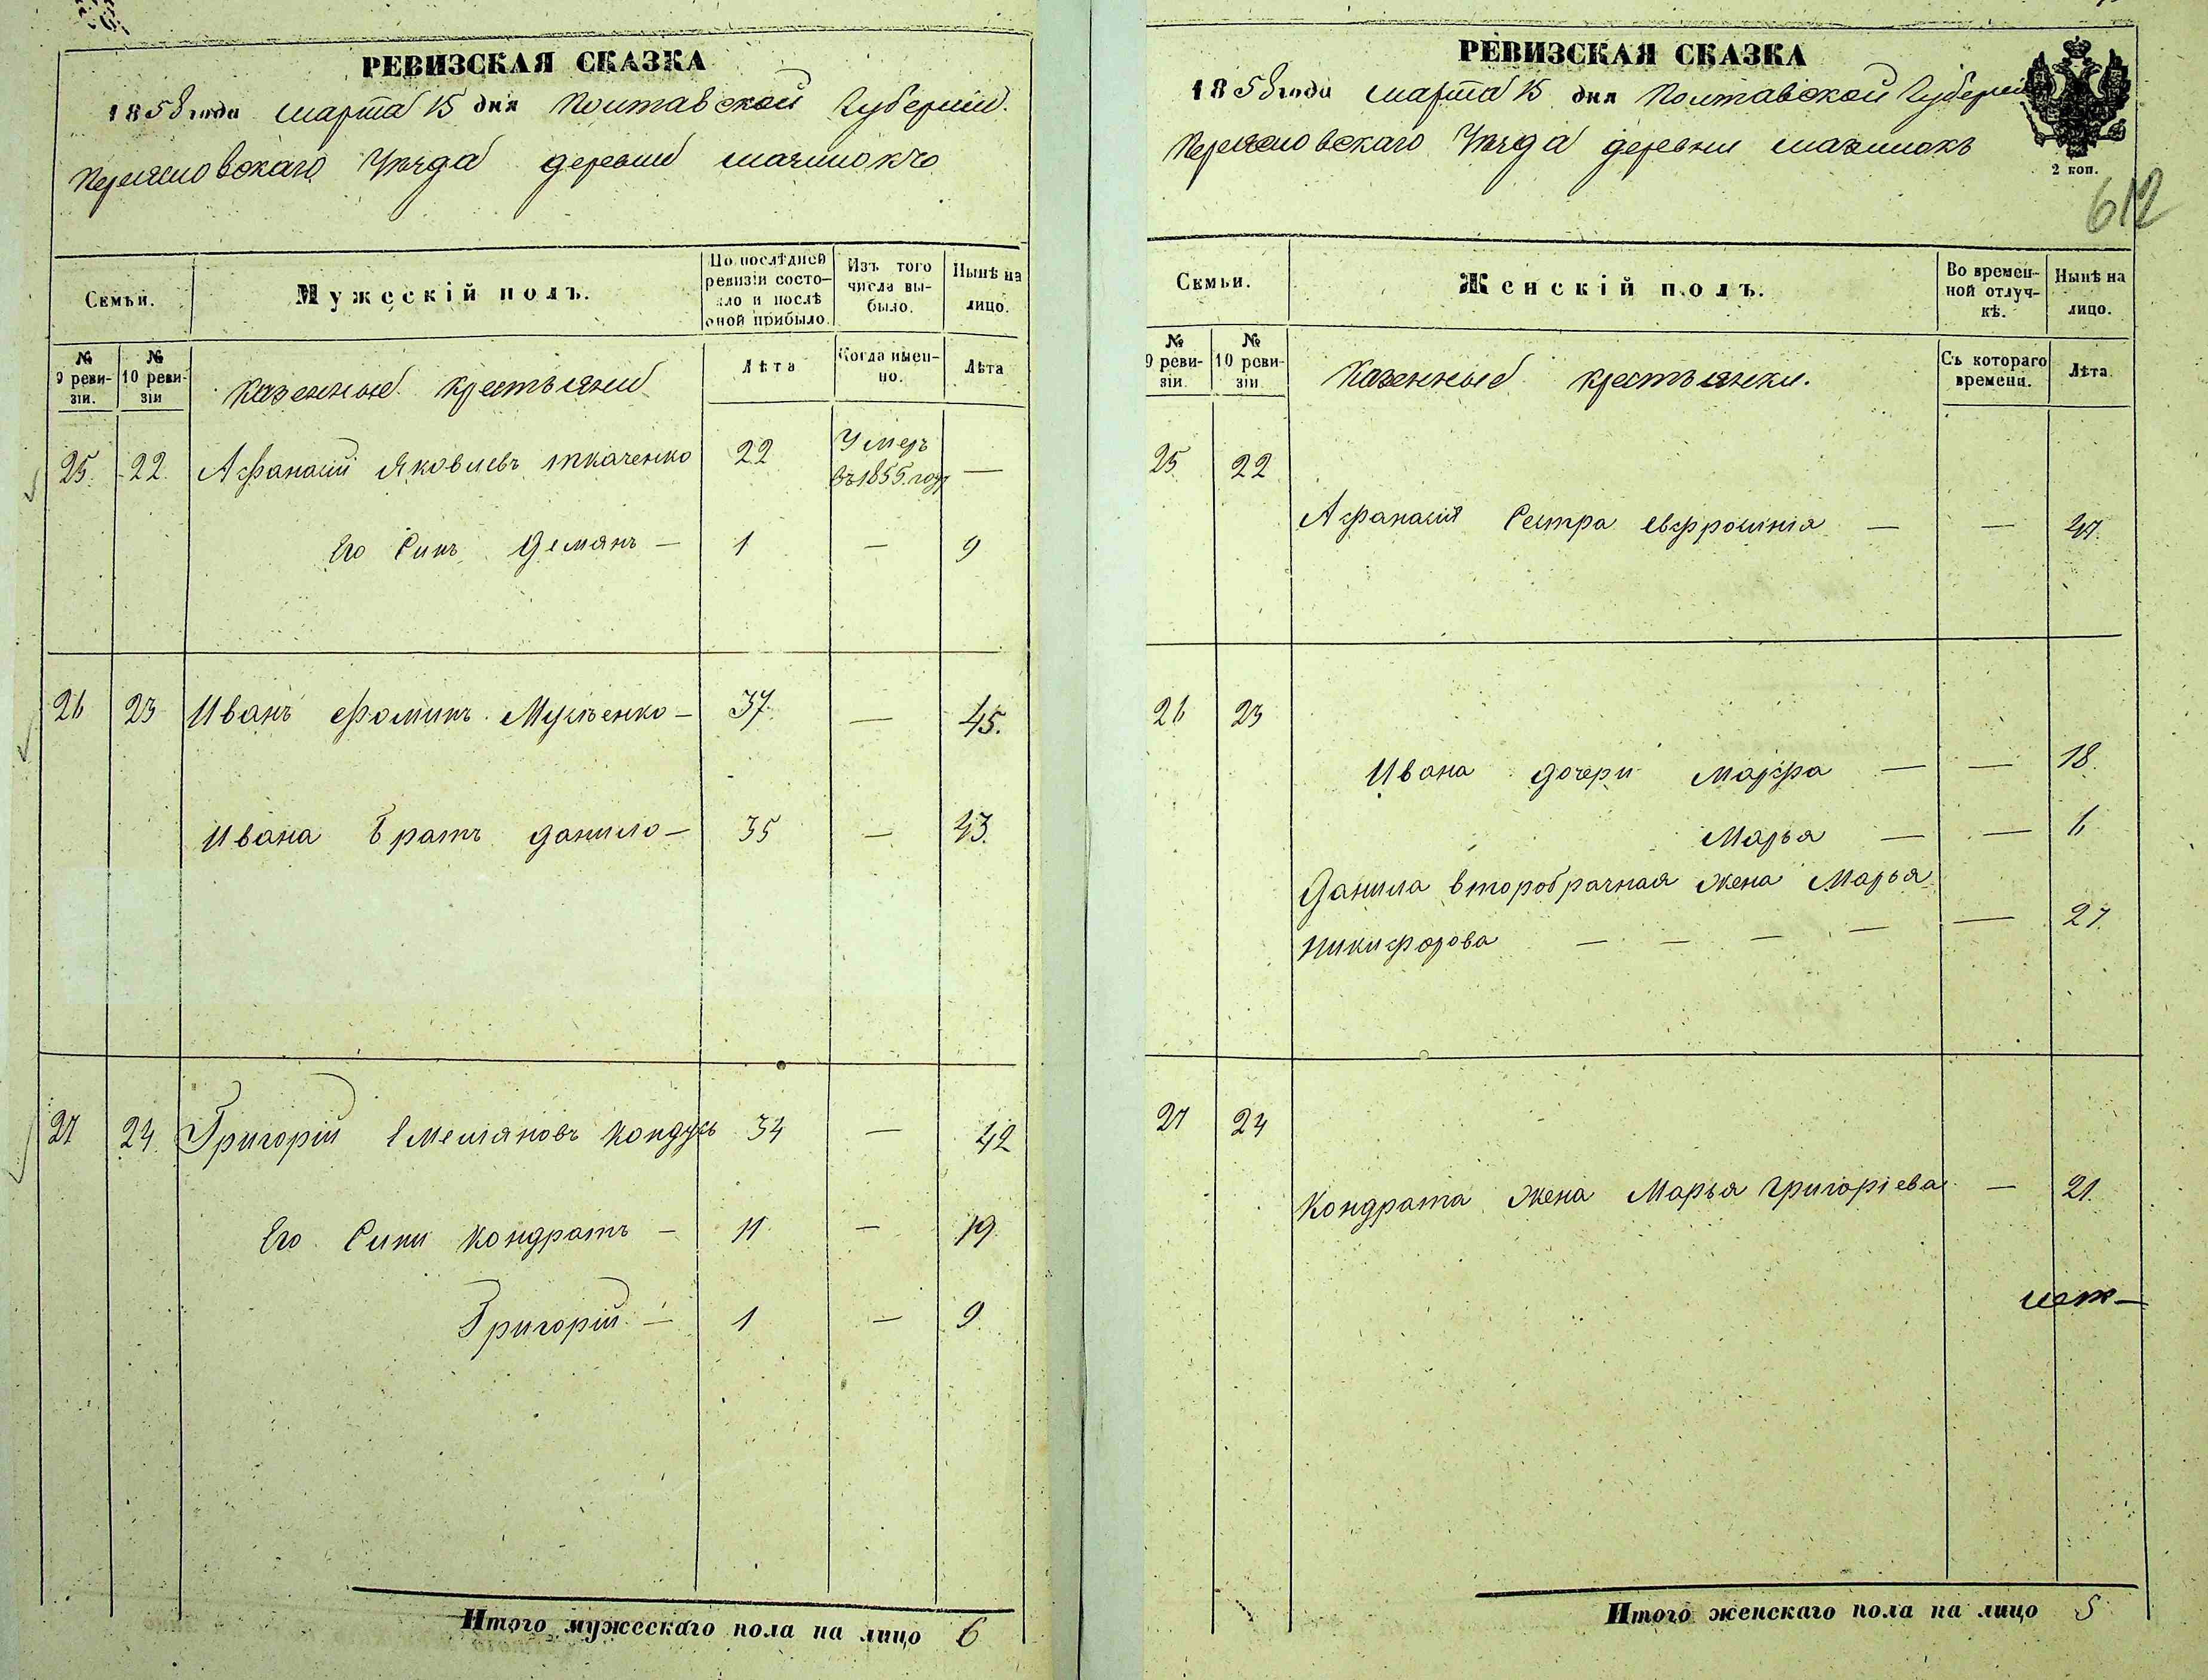 РЕВИЗСКАЯ СКАЗКА
1858 года марта 15 дня Полтавской Губерніи
Переясловскаго Уѣзда деревни
Семьи.
Мужескій полъ.
По послѣдней ревизіи состояло и послѣ оной прибыло.
Изъ того числа выбыло.
Нынѣ на лицо.
№ 9 ревизіи.
№ 10 ревизіи
Казенные крестьяни
Лѣта
Когда именно.
Лѣта
25. 22. Афанасій Яковлевъ Ткаченко 22 Умеръ въ 1855 году —
Его Синъ Демянъ — 1 — 9
26 23 Иванъ Фоминъ — 37 — 45.
Ивана Братъ Данило — 35 — 43.
27 24 Григорій Емеляновъ 34 — 42
Его Сини Кондратъ — 11 — 19
Григорій — 1 — 9
Итого мужескаго пола на лицо 6
РЕВИЗСКАЯ СКАЗКА
1858 года марта 15 дня Полтавской Губерніи
Переясловскаго Уѣзда деревни
2 коп.
612
Семьи.
Женскій полъ.
Во временной отлучкѣ.
Нынѣ на лицо.
№ 9 ревизіи.
№ 10 ревизіи
Казенные крестьянки.
Съ котораго времени.
Лѣта
25 22
Афанасія Сестра Евфросинія — —
26 23
Ивана дочери Марфа — — 18.
Марья — — 6
Данила второбрачная жена Марья
Никифорова — — — — — 27.
27 24
Кондрата жена Марья Григоріева — 21.
Итого женскаго пола на лицо 5